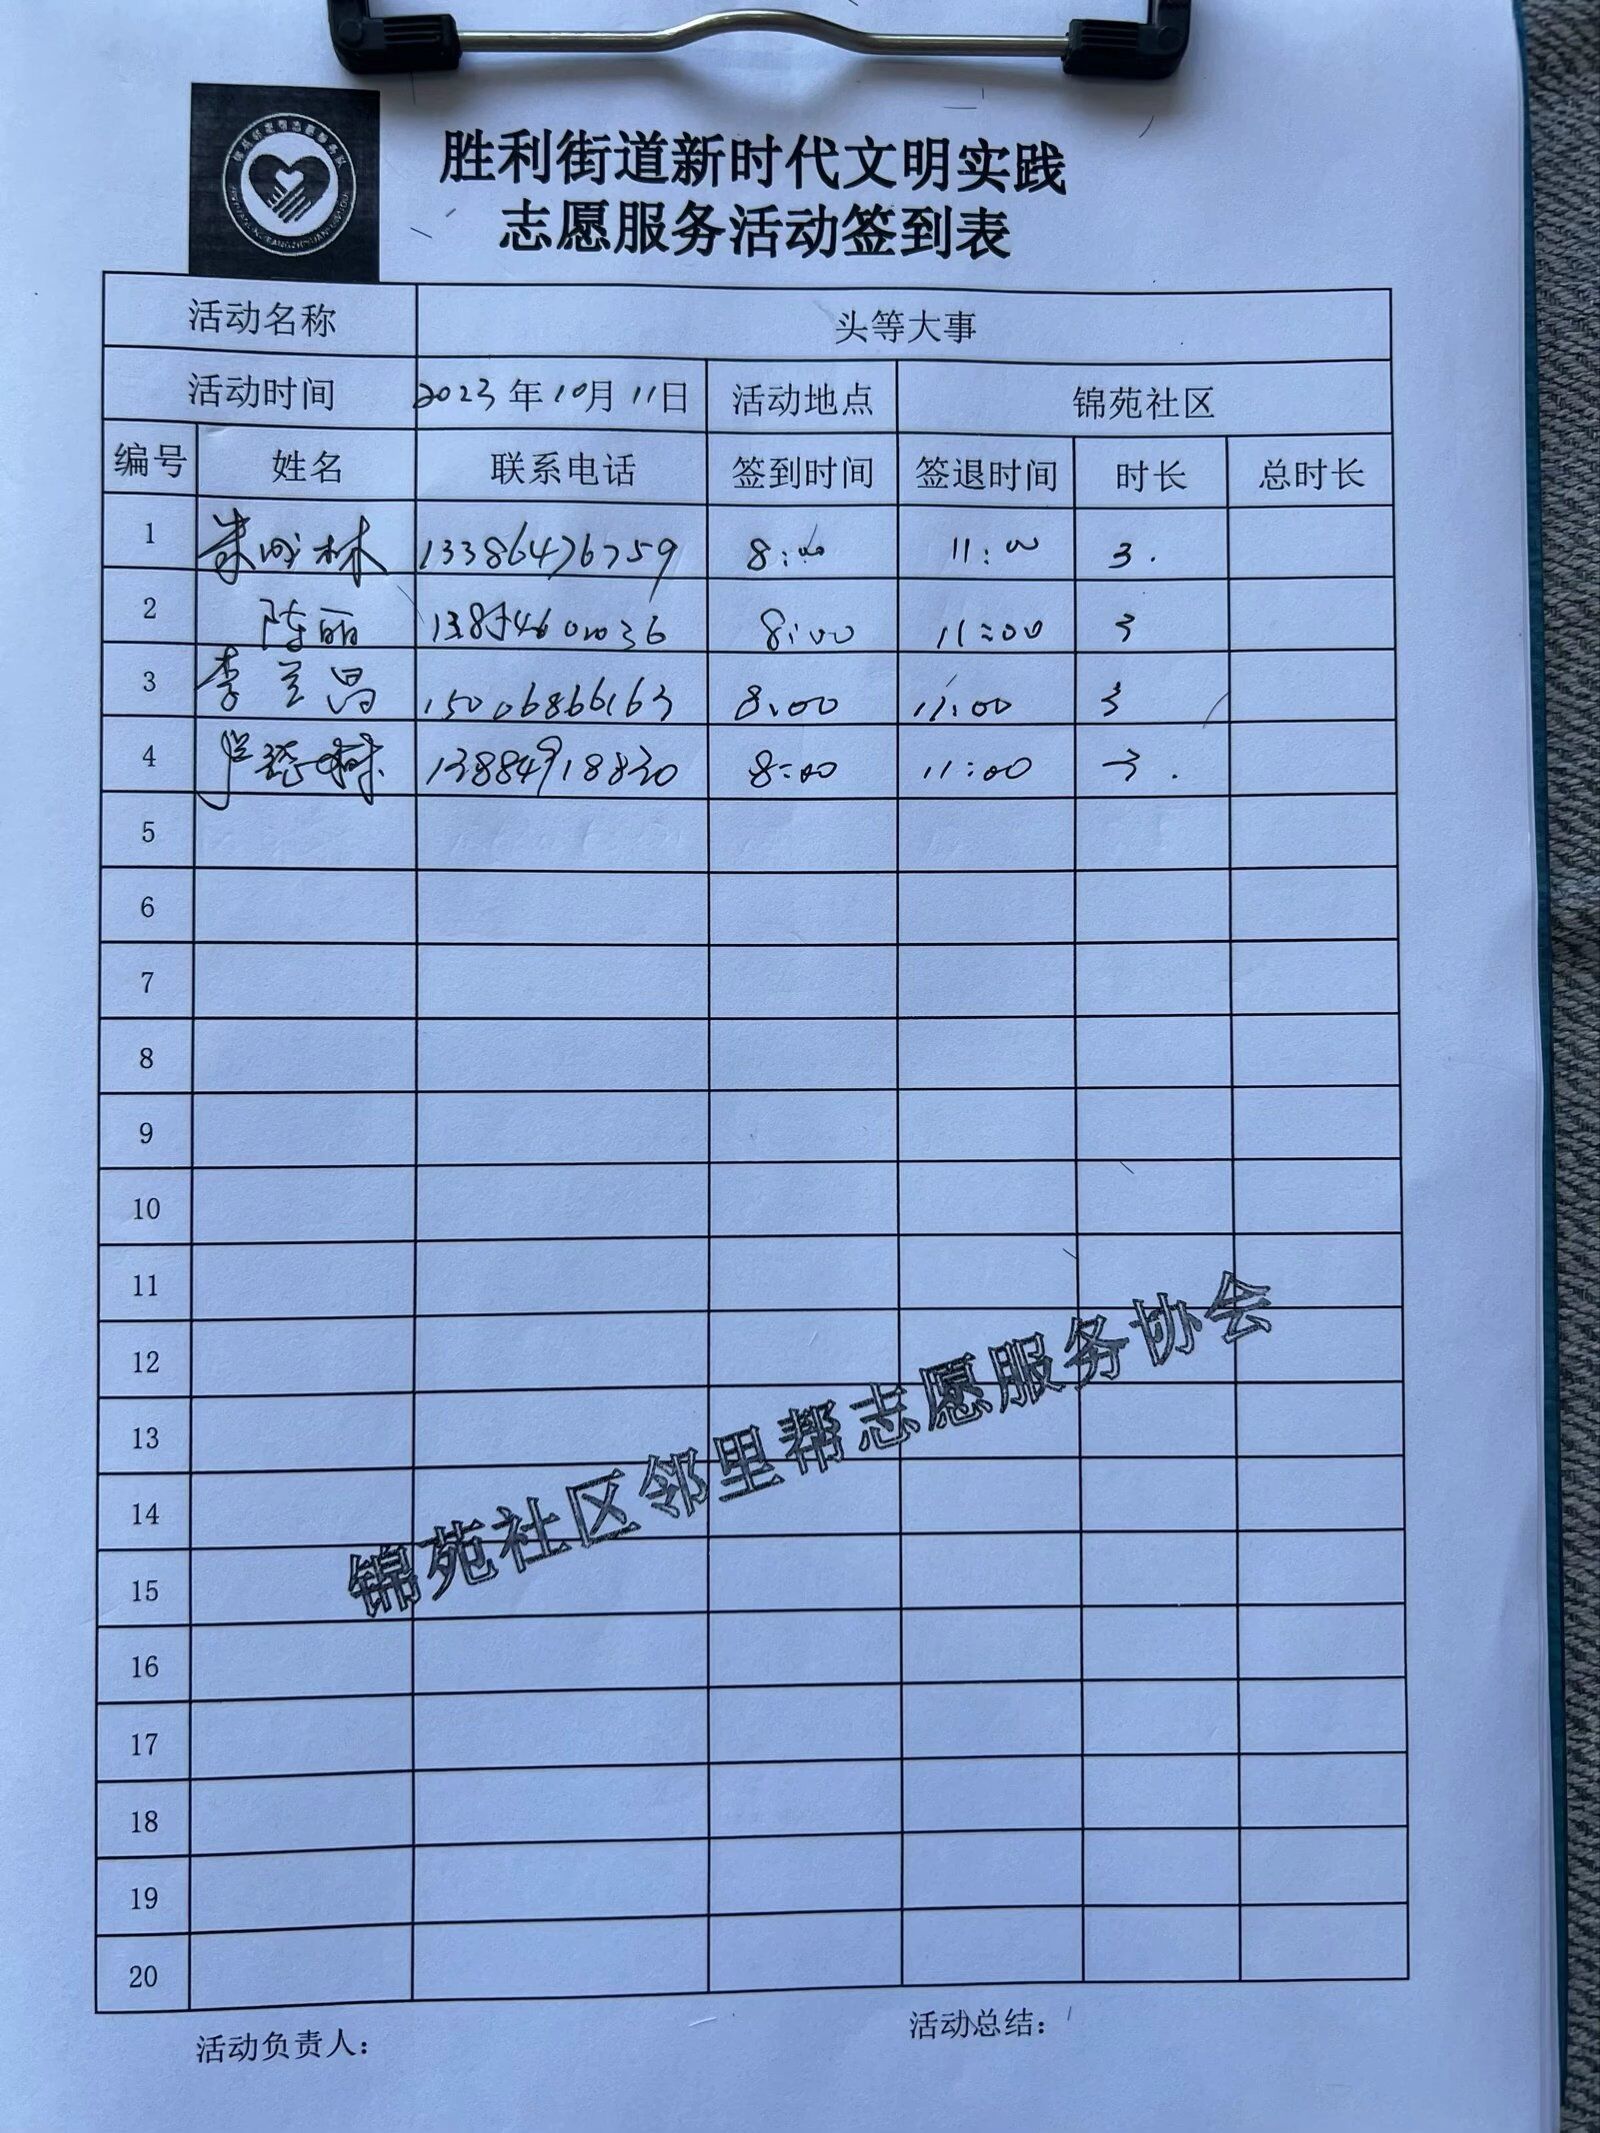 胜利街道新时代文明实践
志愿服务活动签到表
活动名称 头等大事
活动时间 2023年10月11日 活动地点 锦苑社区
编号 姓名 联系电话 签到时间 签退时间 时长 总时长
1 朱成林 13386476759 8:00 11:00 3.
2 陈丽 8:00 11:00 3
3 李兰昌 15006866163 8:00 11:00 3
4 13884918830 8:00 11:00 3.
5
6
7
8
9
10
11
12
13
14
15
16
17
18
19
20
锦苑社区邻里帮志愿服务协会
活动负责人: 活动总结: